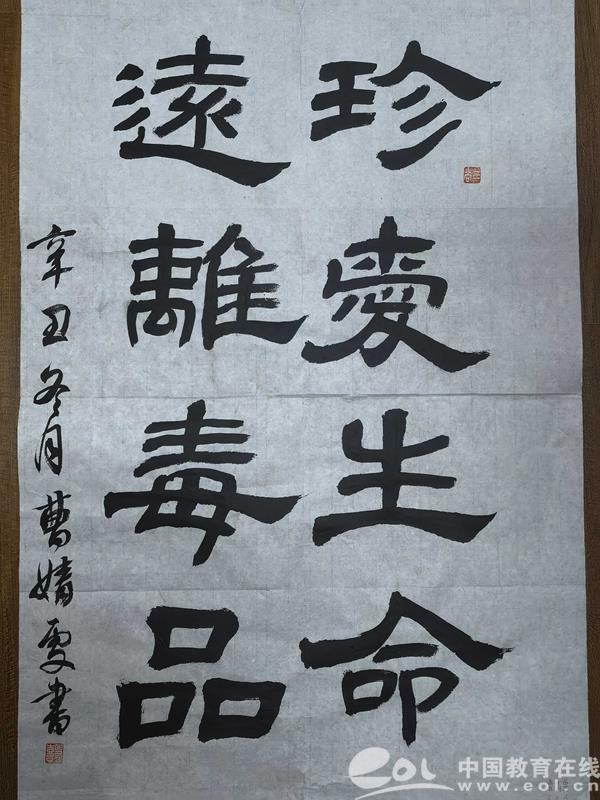 珍愛生命
遠離毒品
辛丑冬月曹婧雯書
eol 中国教育在线
www.eol.cn